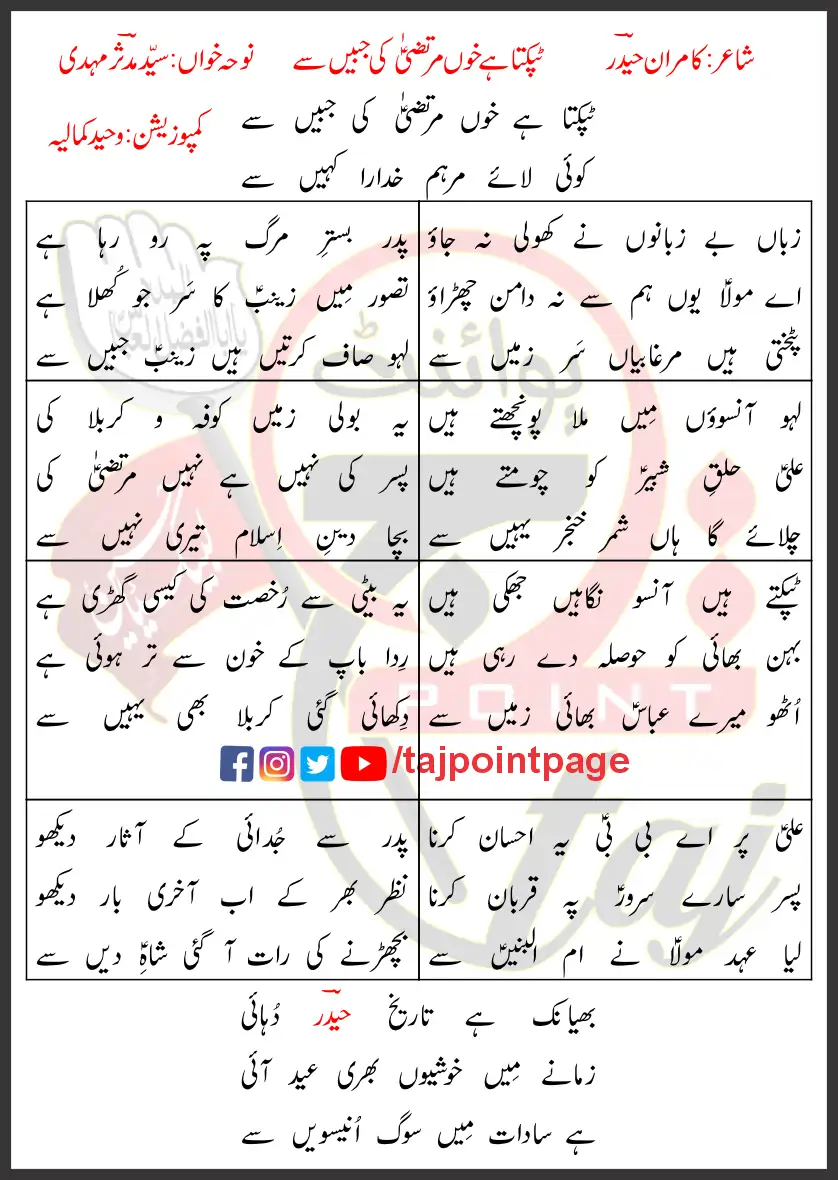 شاعر: کامران حیدرؔ ٹپکتا ہے خوں مرتضیٰؑ کی جبیں سے نوحہ خواں: سیّد مدثرؔ مہدی
ٹپکتا ہے خوں مرتضیٰؑ کی جبیں سے
کمپوزیشن: وحید کمالیہ
کوئی لائے مرہم خدارا کہیں سے
زباں بے زبانوں نے کھولی نہ جاؤ
اے مولاؑ یوں ہم سے نہ دامن چھڑاؤ
پٹختی ہیں مرغابیاں سَر زمیں سے
پدر بسترِ مرگ پہ رو رہا ہے
تصور مِیں زینبؑ کا سَر جو کُھلا ہے
لہو صاف کرتیں ہیں زینبؑ جبیں سے
لہو آنسوؤں مِیں ملا پونچھتے ہیں
علیؑ حلقِ شبیرؑ کو چومتے ہیں
چلائے گا ہاں شمر خنجر یہیں سے
یہ بولی زمیں کوفہ و کربلا کی
پسر کی نہیں ہے نہیں مرتضیٰؑ کی
بچا دینِ اِسلام تیری نہیں سے
ٹپکتے ہیں آنسو نگاہیں جھکی ہیں
بہن بھائی کو حوصلہ دے رہی ہیں
اُٹھو میرے عباسؑ بھائی زمیں سے
یہ بیٹی سے رُخصت کی کیسی گھڑی ہے
رِدا باپ کے خون سے تر ہوئی ہے
دِکھائی گئی کربلا بھی یہیں سے
/tajpointpage
علیؑ پر اے بی بیؑ یہ احسان کرنا
پسر سارے سرورؑ پہ قربان کرنا
لیا عہد مولاؑ نے ام البنیںؑ سے
پدر سے جُدائی کے آثار دیکھو
نظر بھر کے اب آخری بار دیکھو
بچھڑنے کی رات آ گئی شاہِؑ دیں سے
بھیانک ہے تاریخ حیدرؔ دُہائی
زمانے مِیں خوشیوں بھری عید آئی
ہے سادات مِیں سوگ اُنیسویں سے
پوائنٹ
تاج
POINT
taj